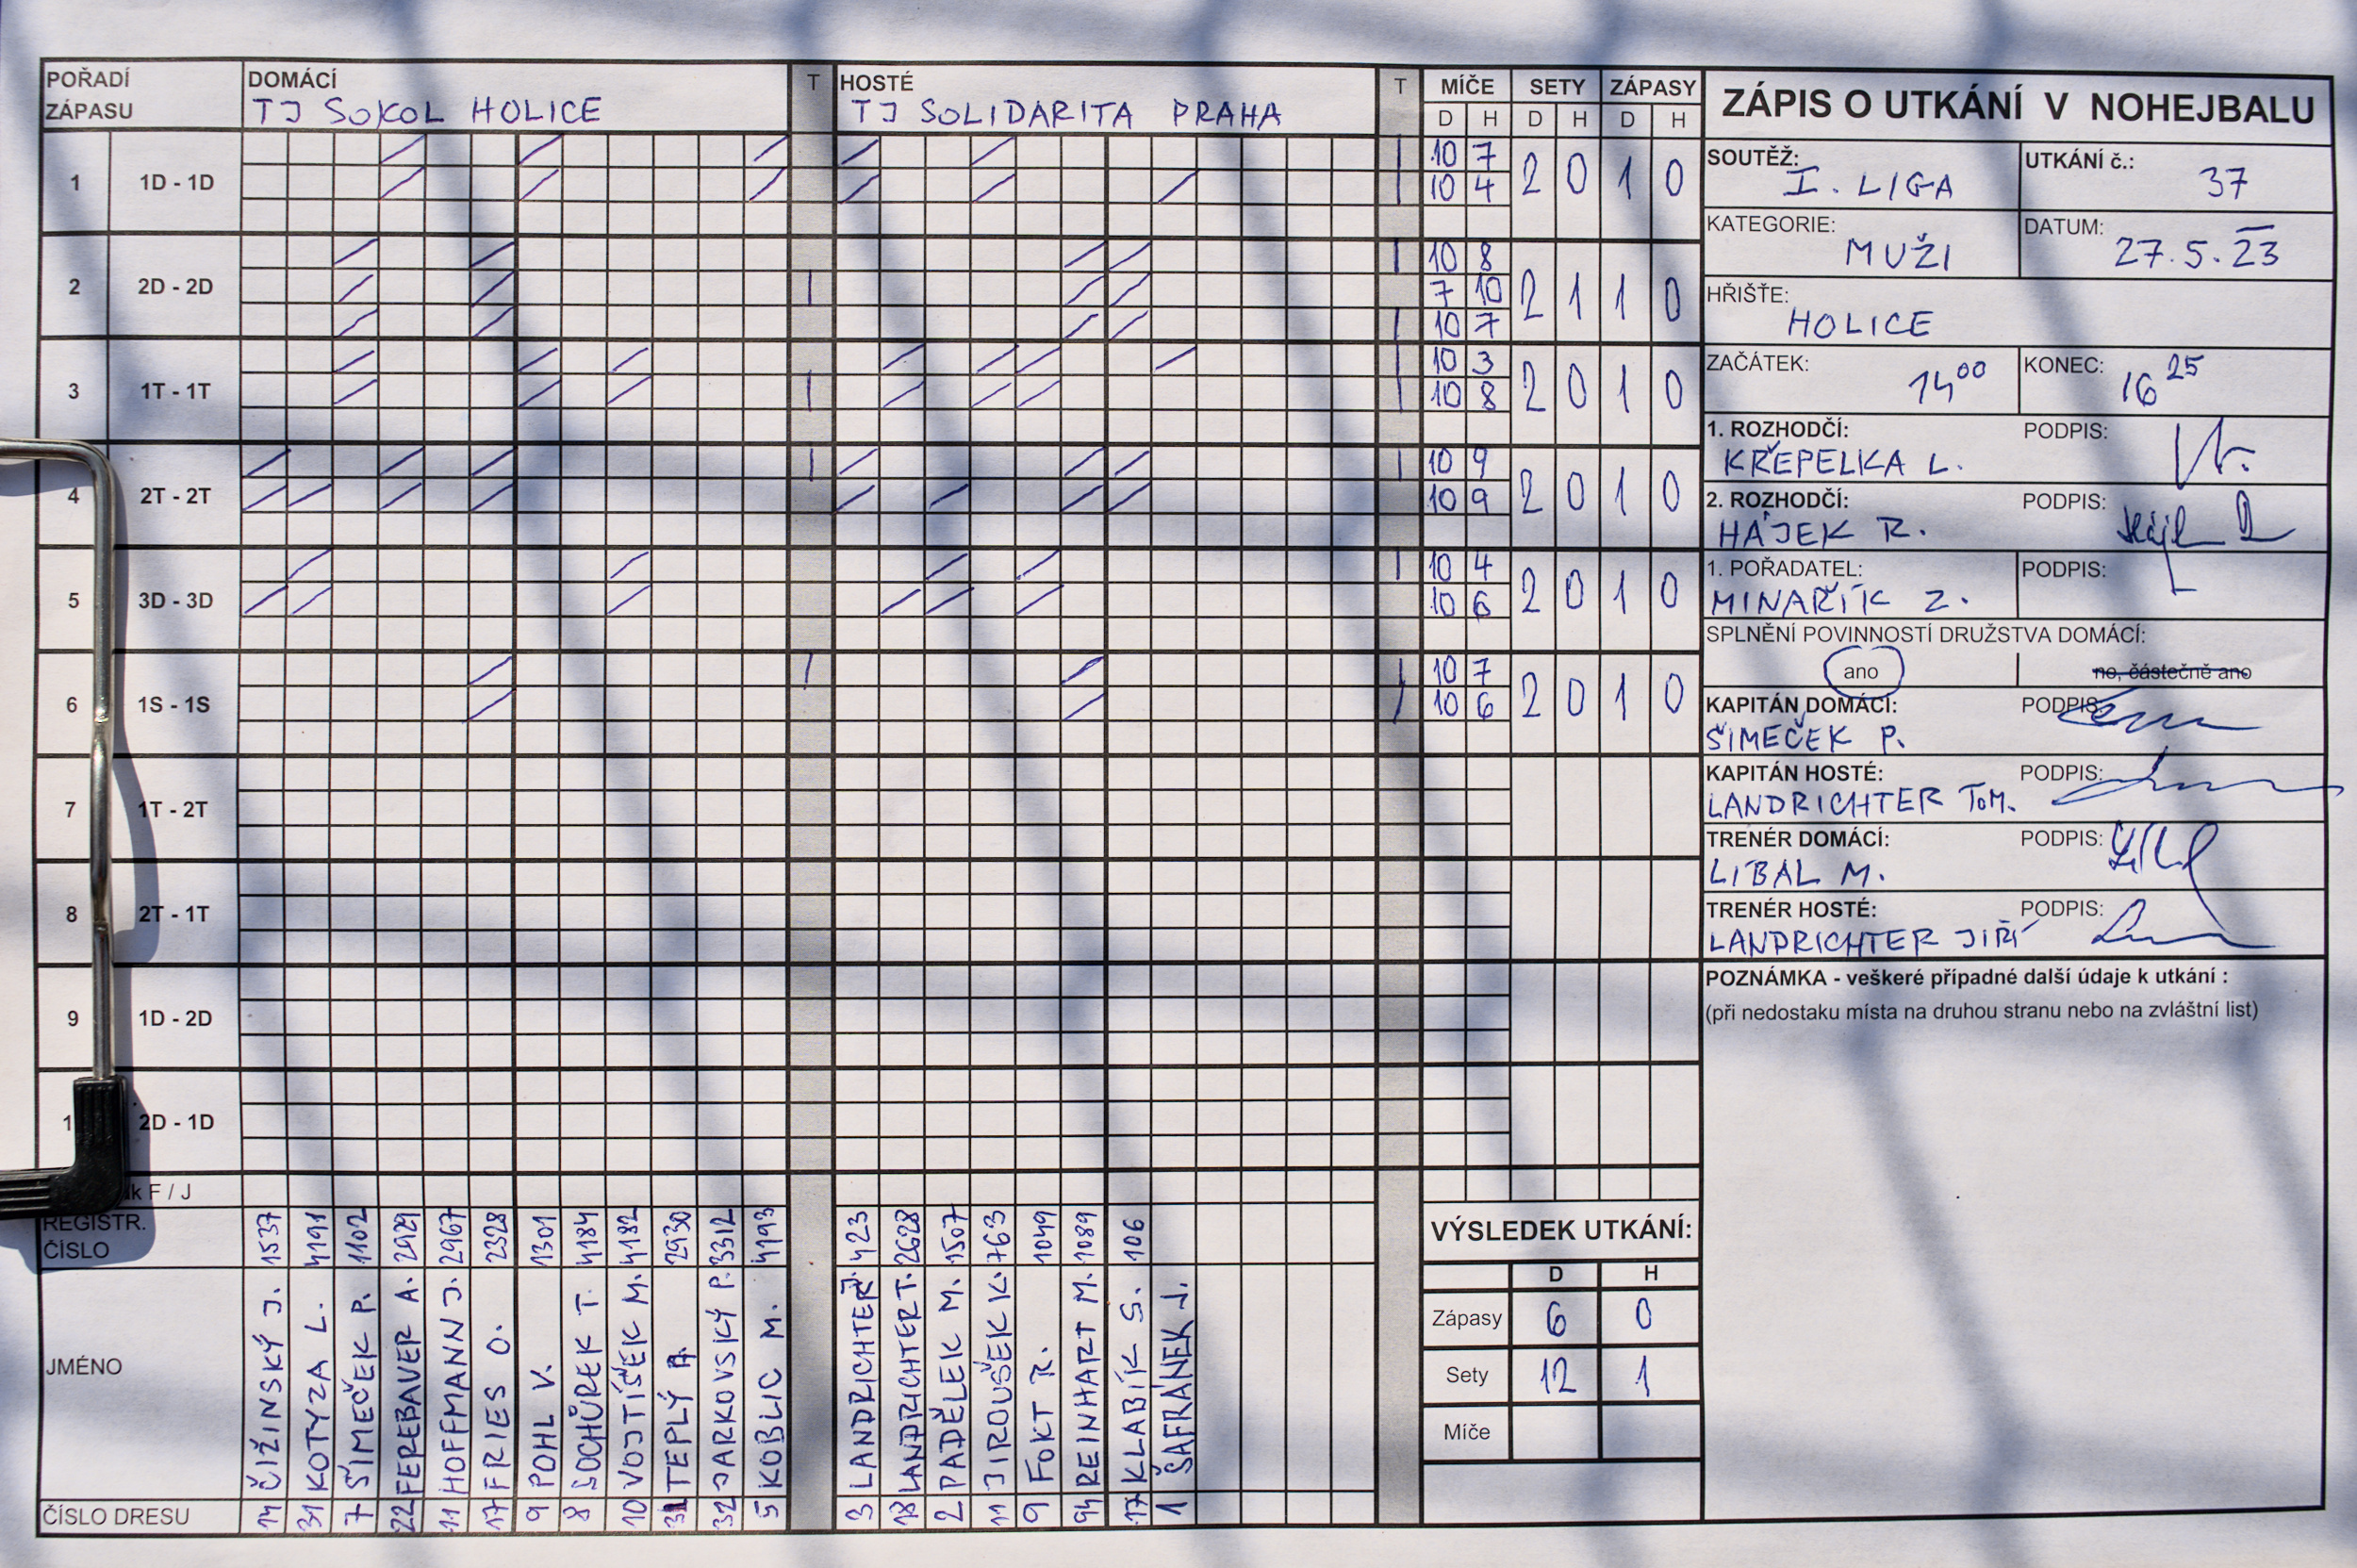 POŘADÍ ZÁPASU
DOMÁCÍ
TJ SOKOL HOLICE
T
HOSTÉ
TJ SOLIDARITA PRAHA
T
MÍČE SETY ZÁPASY
D H D H D H
1 1D - 1D 10 7 2 0 1 0
10 4
2 2D - 2D 10 8 2 1 1 0
7 10
10 7
3 1T - 1T 10 3 2 0 1 0
10 8
4 2T - 2T 10 9 2 0 1 0
10 9
5 3D - 3D 10 4 2 0 1 0
10 6
6 1S - 1S 10 7 2 0 1 0
10 6
7 1T - 2T
8 2T - 1T
9 1D - 2D
2D - 1D
F / J
REGISTR. ČÍSLO
1537 4191 1102 2929 2967 2328 1301 4184 4182 2930 3312 4193
423 2628 1507 763 1049 1089 106
JMÉNO
ČÍŽINSKÝ J.
KOTYZA L.
ŠIMEČEK P.
FEREBAUER A.
HOFFMANN J.
FRIES O.
POHL V.
SOCHŮREK T.
VOJTÍŠEK M.
TEPLÝ
JARKOVSKÝ P.
KOBLIC M.
LANDRICHTER J.
LANDRICHTER T.
PADĚLEK M.
JIROUŠEK K.
FOKT R.
REINHART M.
KLABÍK S.
ŠAFRÁNEK J.
ČÍSLO DRESU
14 31 7 22 11 17 9 8 10 32 5
3 18 2 11 9 94 17 1
VÝSLEDEK UTKÁNÍ:
D H
Zápasy 6 0
Sety 12 1
Míče
ZÁPIS O UTKÁNÍ V NOHEJBALU
SOUTĚŽ: I. LIGA
UTKÁNÍ č.: 37
KATEGORIE: MUŽI
DATUM: 27.5.23
HŘIŠTĚ: HOLICE
ZAČÁTEK: 14 00
KONEC: 16 25
1. ROZHODČÍ: PODPIS:
KŘEPELKA L.
2. ROZHODČÍ: PODPIS:
HÁJEK R.
1. POŘADATEL: PODPIS:
MINAŘÍK Z.
SPLNĚNÍ POVINNOSTÍ DRUŽSTVA DOMÁCÍ:
ano ne, částečně ano
KAPITÁN DOMÁCÍ: PODPIS:
ŠIMEČEK P.
KAPITÁN HOSTÉ: PODPIS:
LANDRICHTER TOM.
TRENÉR DOMÁCÍ: PODPIS:
LÍBAL M.
TRENÉR HOSTÉ: PODPIS:
LANDRICHTER JIŘÍ
POZNÁMKA - veškeré případné další údaje k utkání :
(při nedostaku místa na druhou stranu nebo na zvláštní list)